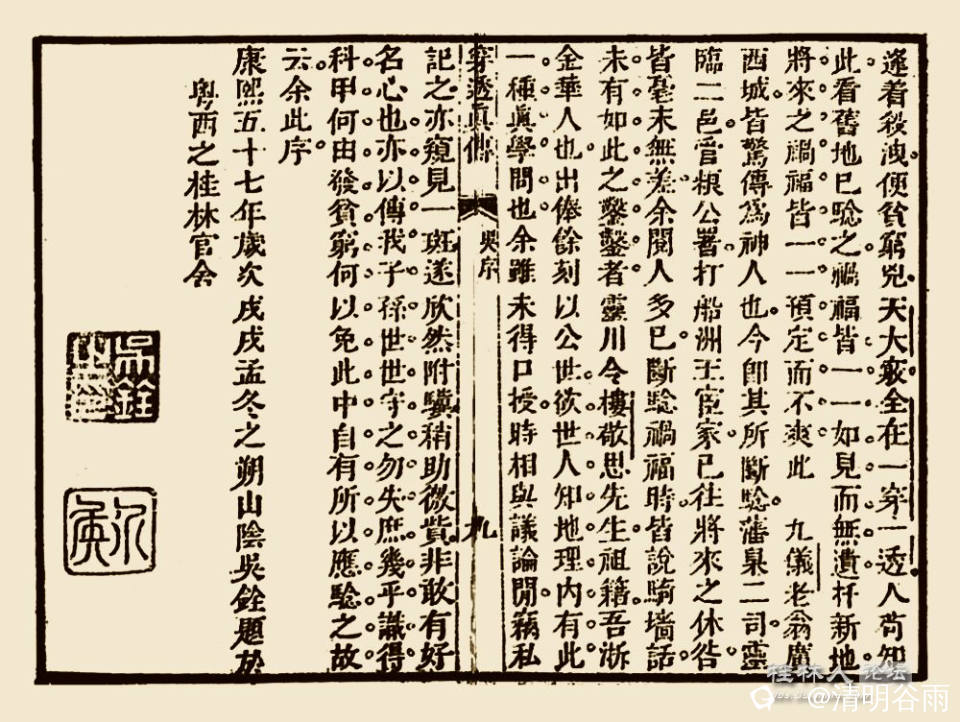 逢着殺洩便貧窮兇天大竅全在一穿一透人苟知
此看舊地已騐之禍福皆一一如見而無遺杆新地
將來之禍福皆一一預定而不爽此 九儀老翁廣
西城皆驚傳爲神人也今卽其所斷騐藩臬二司靈
臨二邑管粮公署打船洲王宦家已往將來之休咎
皆毫末無差余閱人多已斷騐禍福時皆說騎墻話
未有如此之鑿鑿者靈川令樓敬思先生祖籍吾浙
金華人也出俸餘刻以公世欲世人知地理内有此
一種眞學問也余雖未得口授時相與議論間竊私
穿透眞傳 吳序 九
記之亦窺見一斑遂欣然附驥稍助微貲非敢有好
名心也亦以傳我子孫世世守之勿失庶幾乎識得
科甲何由發貧窮何以免此中自有所以應騐之故
云余此序
康熙五十七年歲次戊戌孟冬之朔山陰吳銓題於
粵西之桂林官舍
吳銓
桂林人论坛
@清明谷雨